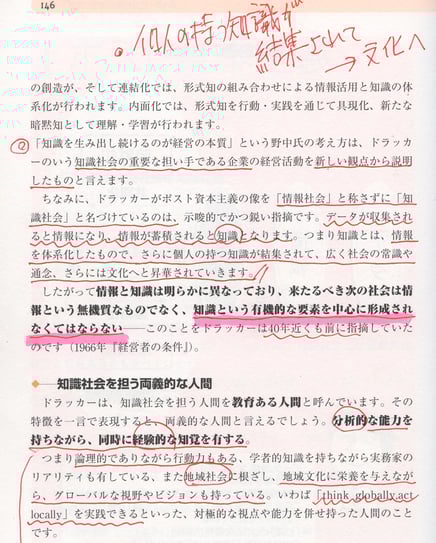 146
個人の持つ知識が
結集されて
→ 文化へ
の創造が、そして連結化では、形式知の組み合わせによる情報活用と知識の体
系化が行われます。内面化では、形式知を行動・実践を通じて具現化、新たな
暗黙知として理解・学習が行われます。
「知識を生み出し続けるのが経営の本質」という野中氏の考え方は、ドラッカ
ーのいう知識社会の重要な担い手である企業の経営活動を新しい観点から説明
したものと言えます。
ちなみに、ドラッカーがポスト資本主義の像を「情報社会」と称さずに「知
識社会」と名づけているのは、示唆的でかつ鋭い指摘です。データが収集され
ると情報になり、情報が蓄積されると知識となります。つまり知識とは、情報
を体系化したもので、さらに個人の持つ知識が結集されて、広く社会の常識や
通念、さらには文化へと昇華されていきます。
したがって情報と知識は明らかに異なっており、来たるべき次の社会は情
報という無機質なものでなく、知識という有機的な要素を中心に形成され
なくてはならない——このことをドラッカーは40年近くも前に指摘していた
のです（1966年『経営者の条件』）。
◆—知識社会を担う両義的な人間
ドラッカーは、知識社会を担う人間を教育ある人間と呼んでいます。その
特徴を一言で表現すると、両義的な人間と言えるでしょう。分析的な能力を
持ちながら、同時に経験的な知覚を有する。
つまり論理的でありながら行動力もある、学者的知識を持ちながら実務家の
リアリティも有している、また地域社会に根ざし、地域文化に栄養を与えなが
ら、グローバルな視野やビジョンも持っている。いわば「think globally,act
locally」を実践できるといった、対極的な視点や能力を併せ持った人間のこと
です。